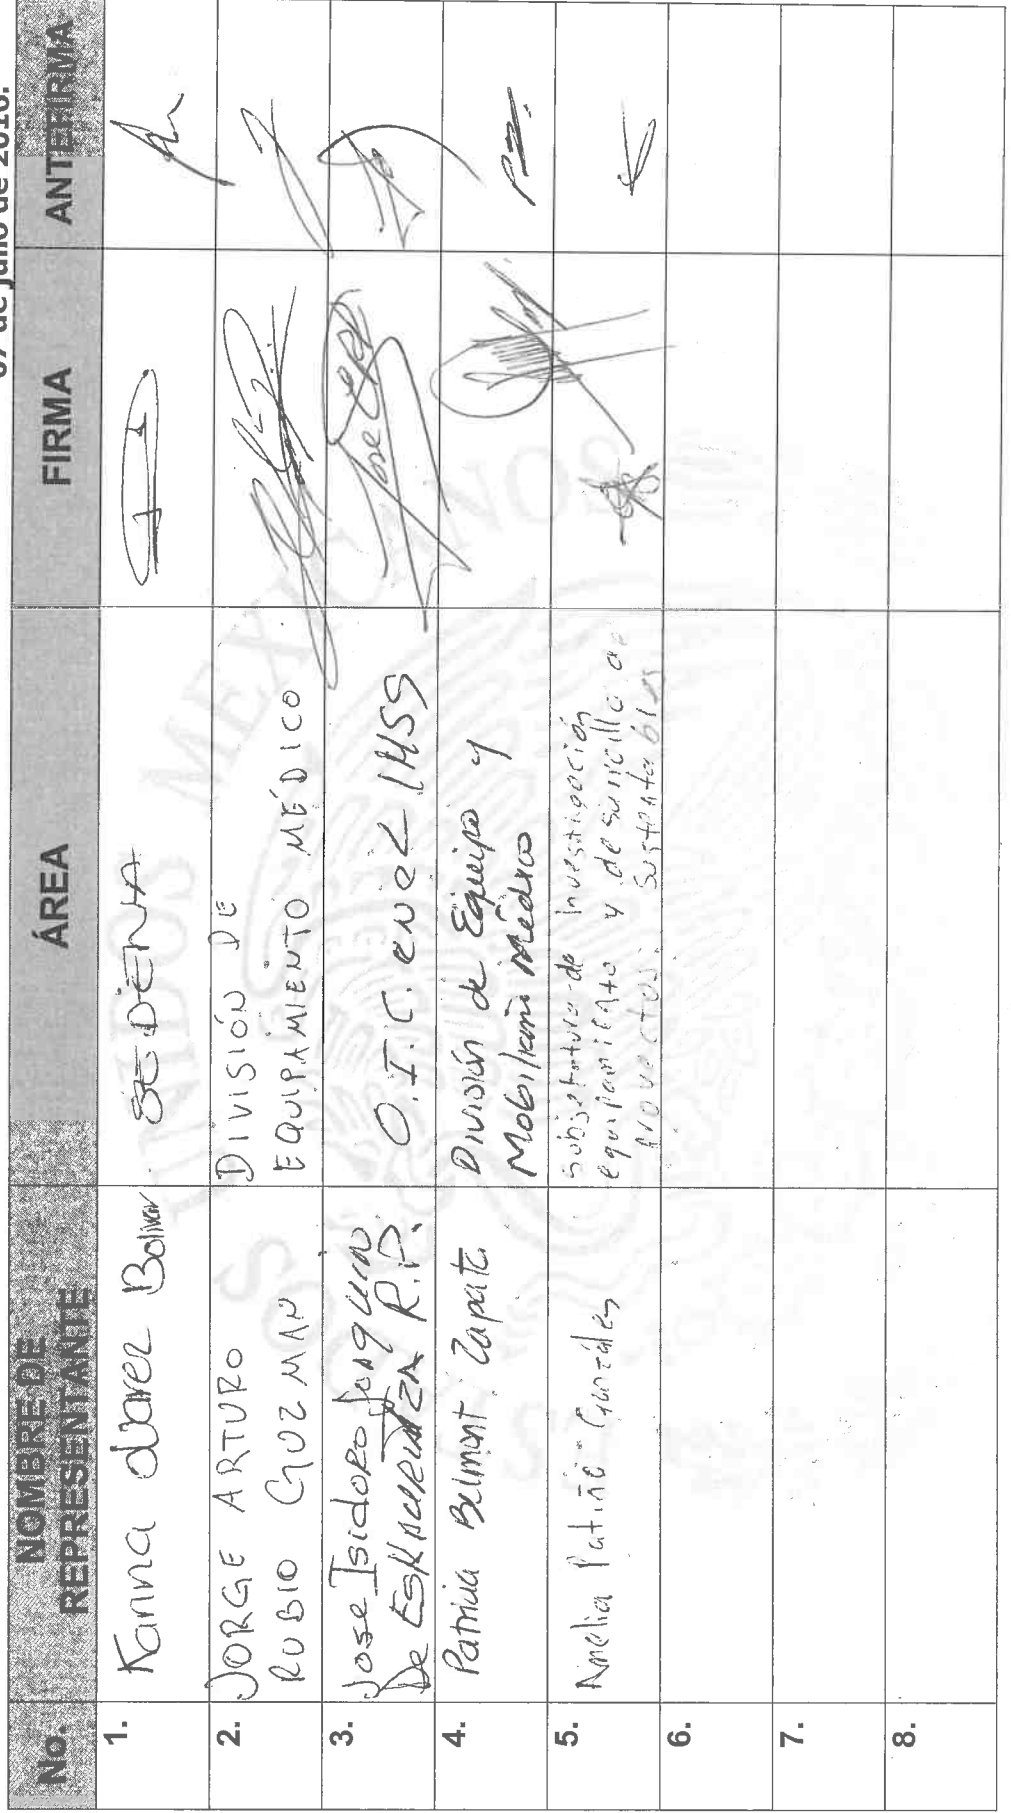 07 de julio de 2016.
No.
NOMBRE DE
REPRESENTANTE
ÁREA
FIRMA
ANTEFIRMA
1.
Karina Juarez Bolivar
SEDENA
2.
JORGE ARTURO
RUBIO GUZMAN
DIVISIÓN DE
EQUIPAMIENTO MÉDICO
3.
Jose Isidoro
De R.P.
O.I.C. en el IMSS
4.
Patricia Belmont Zapata
División de Equipo y
Mobiliario Médico
PBZ.
5.
Amelia Patiño González
Subjefatura de Investigación
equipamiento y desarrollo de
proyectos. Sustentables
6.
7.
8.
UNIDOS MEXICANOS